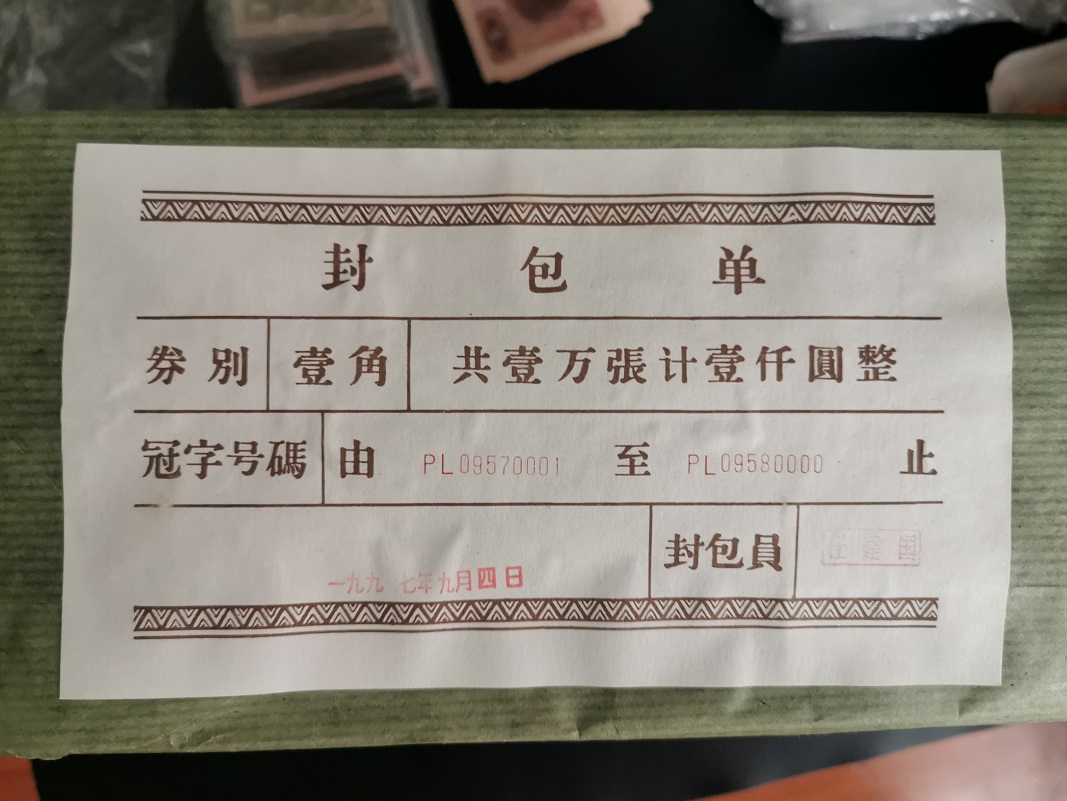 封包单
券別 壹角 共壹万張计壹仟圓整
冠字号碼 由 PL09570001 至 PL09580000 止
一九九七年九月四日 封包員 汪建国